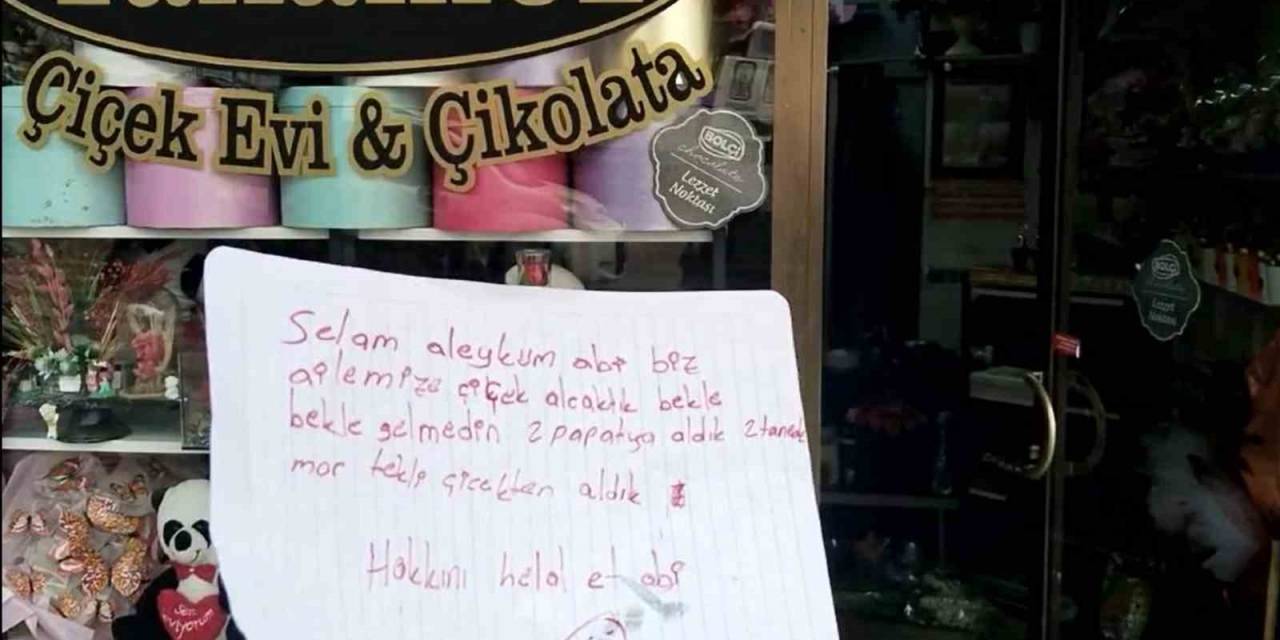 Çiçek Evi & Çikolata
BOLÇİ
chocolate
Lezzet
Noktası
BOLÇİ
chocolate
Lezzet
Noktası
Selam aleykum abi biz
ailemize çiçek alcaktık bekle
bekle gelmedin 2 papatya aldık 2 tanede
mor tekli çiçekten aldık
Hakkını helal et abi
Seni
Seviyorum